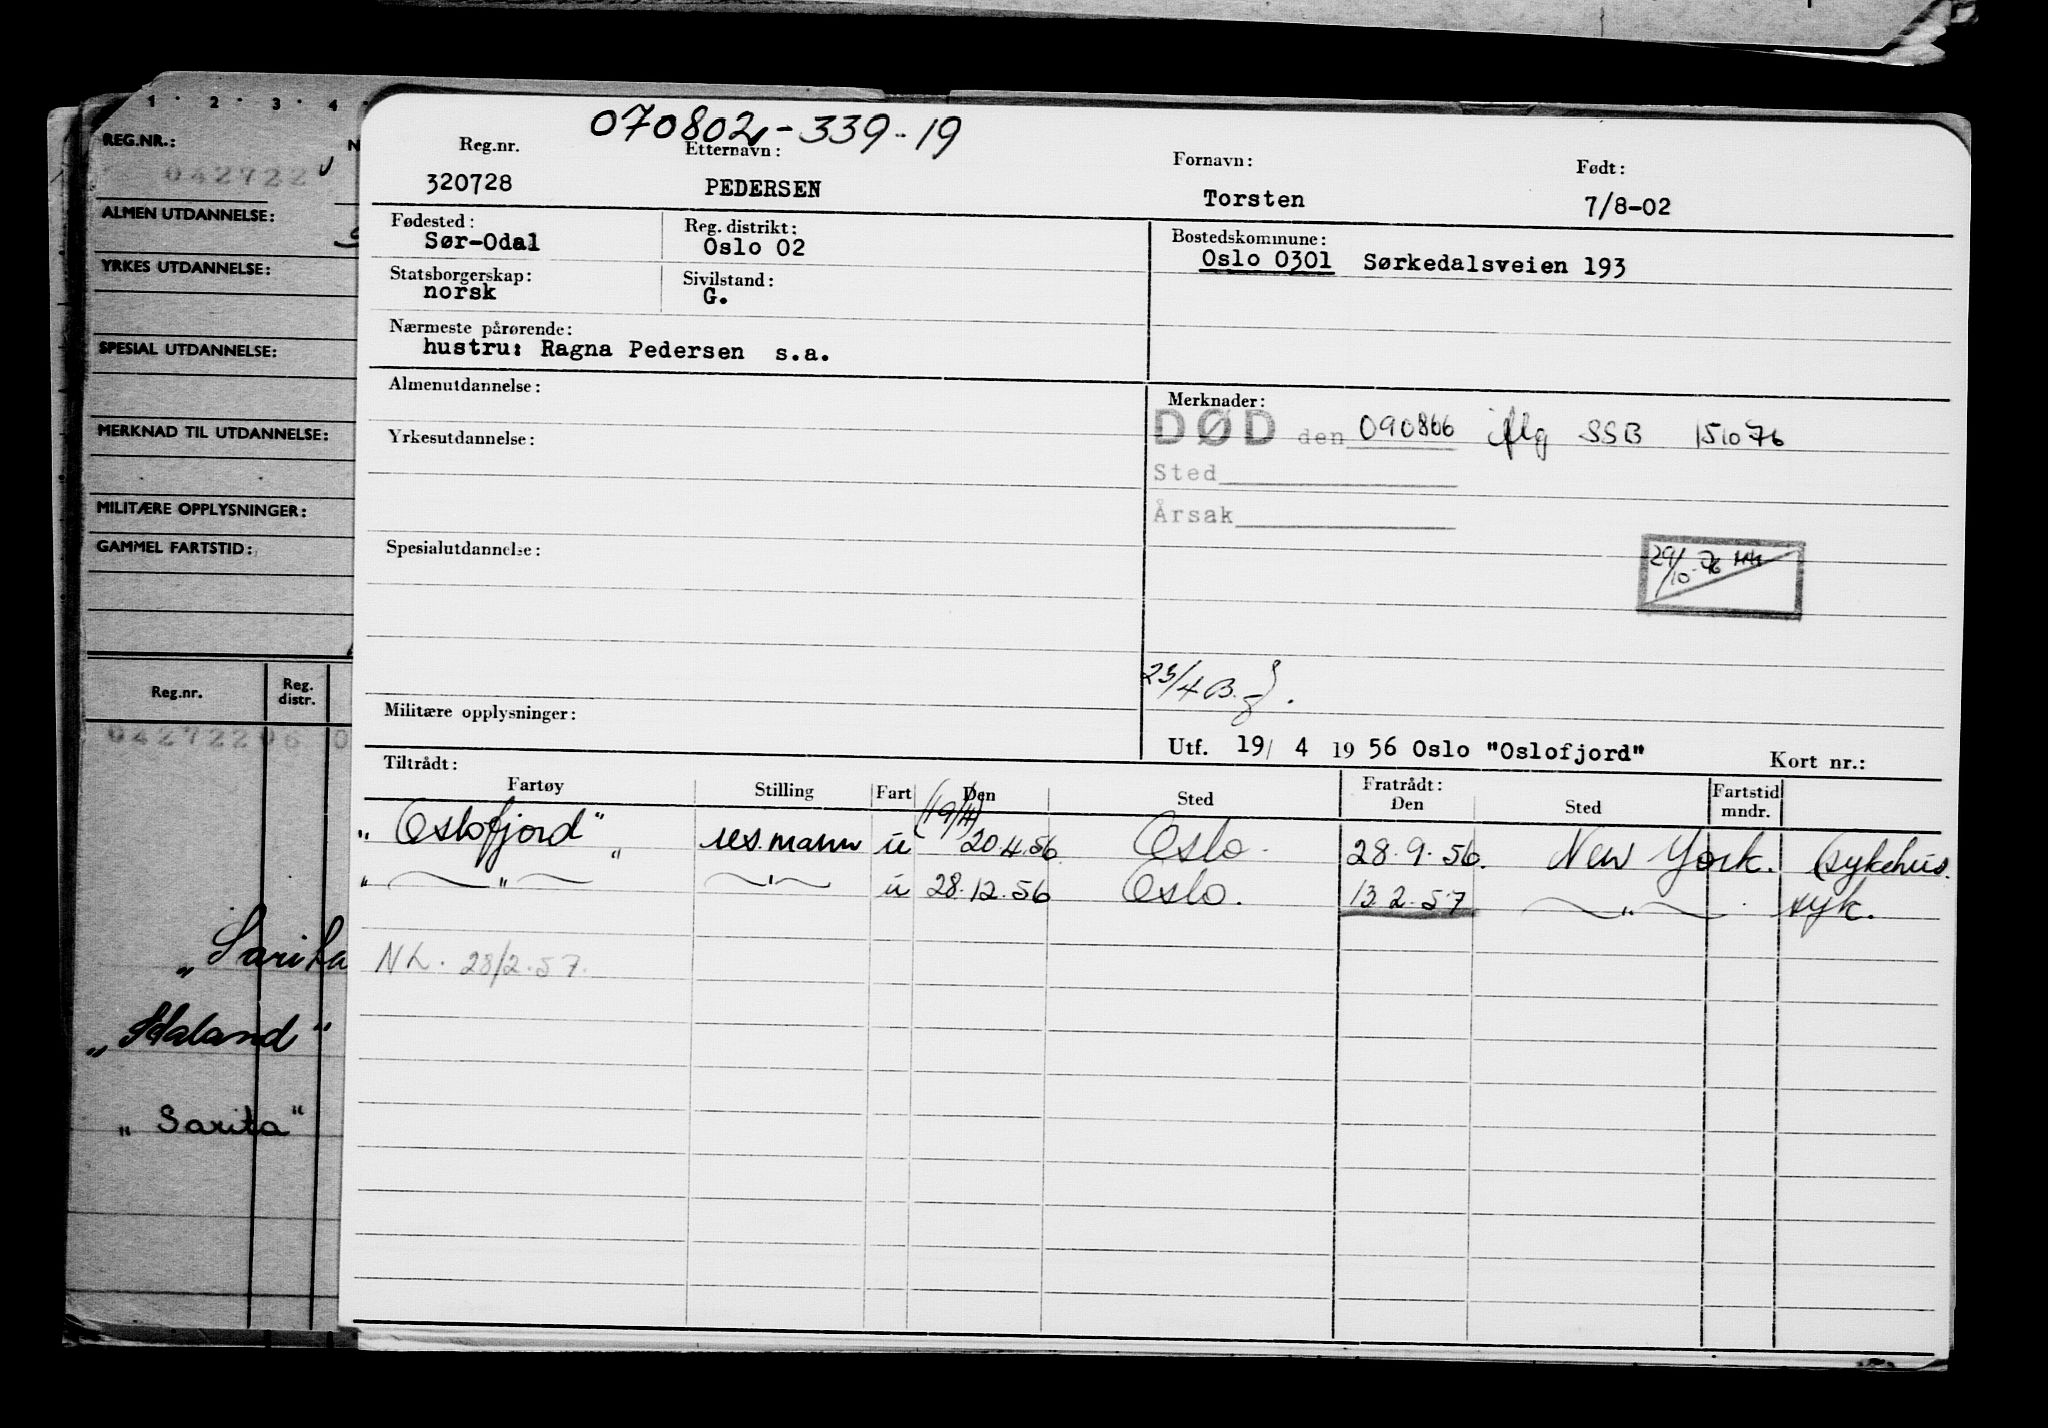 070802-339-19
Reg.nr. Etternavn: Fornavn: Født:
320728 PEDERSEN Torsten 7/8-02
Fødested: Reg. distrikt: Bostedskommune:
Sør-Odal Oslo 02 Oslo 0301 Sørkedalsveien 193
Statsborgerskap: Sivilstand:
norsk G.
Nærmeste pårørende:
hustru: Ragna Pedersen s.a.
Almenutdannelse: Merknader:
DØD den 090866 iflg SSB 151076
Yrkesutdannelse:
Sted
Årsak
Spesialutdannelse:
29/10-76
23/4 B.
Militære opplysninger:
Utf. 19/ 4 19 56 Oslo "Oslofjord" Kort nr.:
Tiltrådt: Fratrådt:
Fartøy Stilling Fart Den Sted Den Sted Fartstid mndr.
(19/4)
"Oslofjord" res.mann u 20.4.56 Oslo. 28.9.56. New York. (sykehus.
" — " — — " — u 28.12.56 Oslo. 13.2.57 — " — syk.
NL. 28/2.57.
1 2 3 4
REG.NR.: N
042722
ALMEN UTDANNELSE:
YRKES UTDANNELSE:
SPESIAL UTDANNELSE:
MERKNAD TIL UTDANNELSE:
MILITÆRE OPPLYSNINGER:
GAMMEL FARTSTID:
Reg.nr. Reg. distr.
04272206 0
"Sarita
"Haland"
"Sarita"